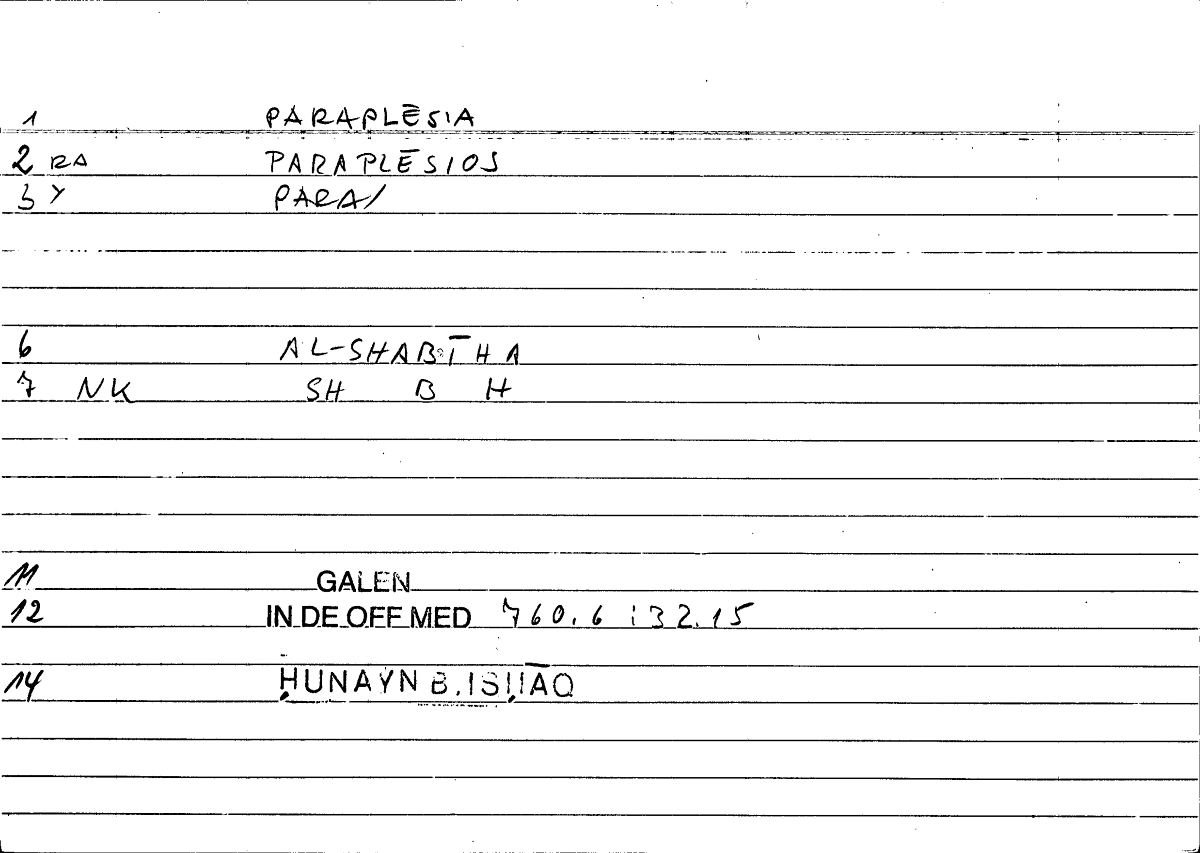 1 PARAPLĒSIA
2 RA PARAPLĒSIOS
3 Y PARA/
6 AL-SHABĪHA
7 NK SH B H
11 GALEN
12 IN DE OFF MED 760.6 : 32.15
14 ḤUNAYN B. ISḤĀQ